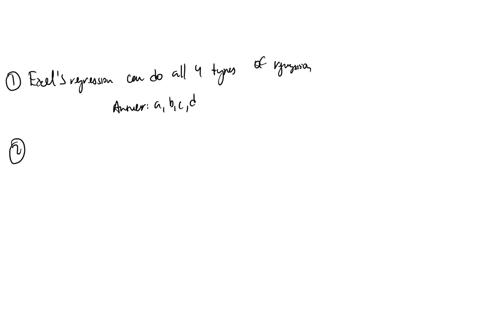 ① Excel's regression can do all 4 types of regression
Answer: a, b, c, d
②